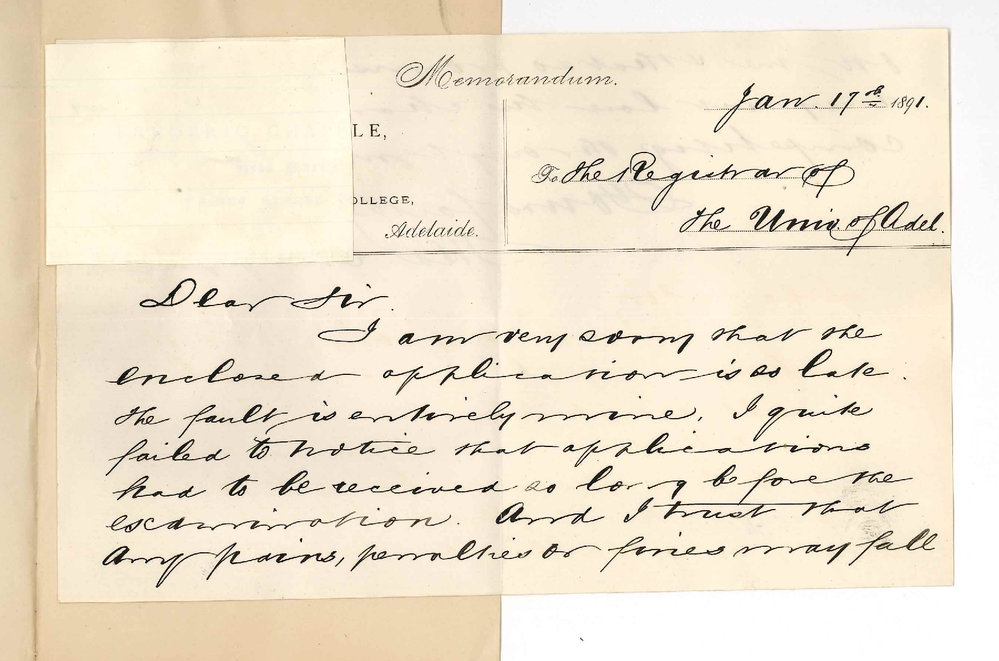 Memorandum.
Jan. 17th 1891.
LE,
To the Registrar of
OLLEGE,
the Univ. of Adel.
Adelaide.
Dear Sir.
I am very sorry that the
enclosed application is so late.
The fault is entirely mine. I quite
failed to notice that applications
had to be received so long before the
examination. And I trust that
any pains, penalties or fines may fall